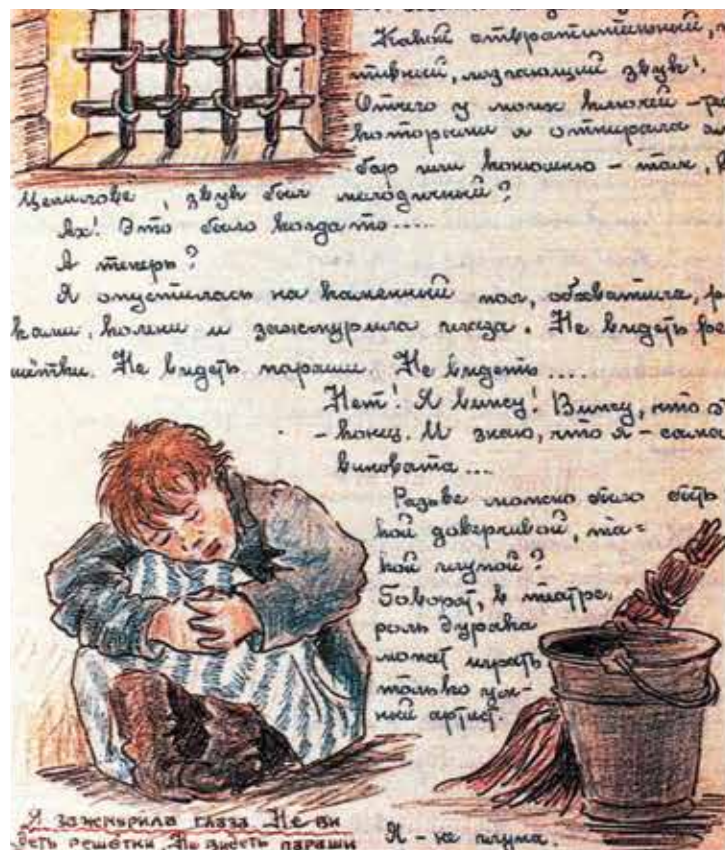 Какой отвратительный,
тивный, лязгающий звук!
Отчего у моих ключей –
которыми я отпирала ам
бар или конюшню – там, в
Цепилове, звук был мелодичный?
Ах! Это было когда то.....
А теперь?
Я опустилась на каменный пол, обхватила, ру
ками, колени и зажмурила глаза. Не видеть ре
шётки. Не видеть параши. Не видеть....
Нет! Я вижу! Вижу, что э
– конец. И знаю, что я – сама
виновата...
Разве можно было быть
кой доверчивой, та=
кой глупой?
Говорят, в театре,
роль дурака
может играть
только ум-
ный артист.
Я зажмурила глаза Не ви
деть решётки. Не видеть параши
Я – не глупа.